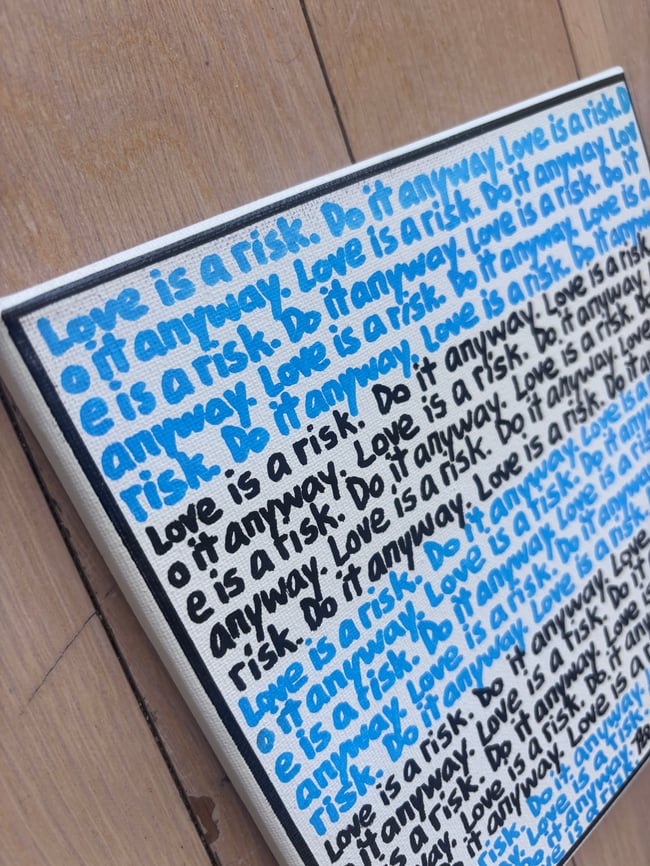 Love is a risk. Do it anyway. Love is a risk. D
o it anyway. Love is a risk. Do it anyway. Lov
e is a risk. Do it anyway. Love is a risk. Do it
anyway. Love is a risk. Do it anyway. Love is a
risk. Do it anyway. Love is a risk. Do it anyway
Love is a risk. Do it anyway. Love is a risk
o it anyway. Love is a risk. Do it anyway.
e is a risk. Do it anyway. Love is a risk. Do
anyway. Love is a risk. Do it anyway. Love
risk. Do it anyway. Love is a risk. Do it an
Love is a risk. Do it anyway. Love is a
o it anyway. Love is a risk. Do it any
e is a risk. Do it anyway. Love is a ris
anyway. Love is a risk. Do it anyway
risk. Do it anyway. Love is a risk.
Love is a risk. Do it anyway. Love
it anyway. Love is a risk. Do it
is a risk. Do it anyway. Do it an
way. Love is a risk. Love is a r
it anyway.
risk. Do it anyway.
Love is a risk.
Do it anyway.
e is a risk